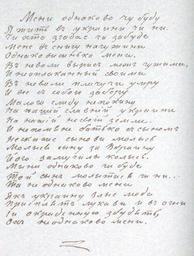 Мени однаково чи буду
Я жить в украини чи ни.
Чи хто згадае чи забуде
Мене в снигу на чужини
Однаковисинько мени.
В неволи вырисъ межъ чужими,
И неоплаканый своими
В неволи плачучи умру
И все зъ собою заберу
Малого слиду не кину
На нашій славній украини
На нашій не своій земли.
И не помьяне батько зъ сыномъ
Не скаже сынови молись
Молися сыну за Вкраину
Його замучили колись.
Мени однаково чи буде
Той сынъ молитися чи ни...
Та не однаково мени
Якъ украину злые люде
Присплять лукави и въ огни
Іи окраденую збудять,
Охъ не однаково мени.